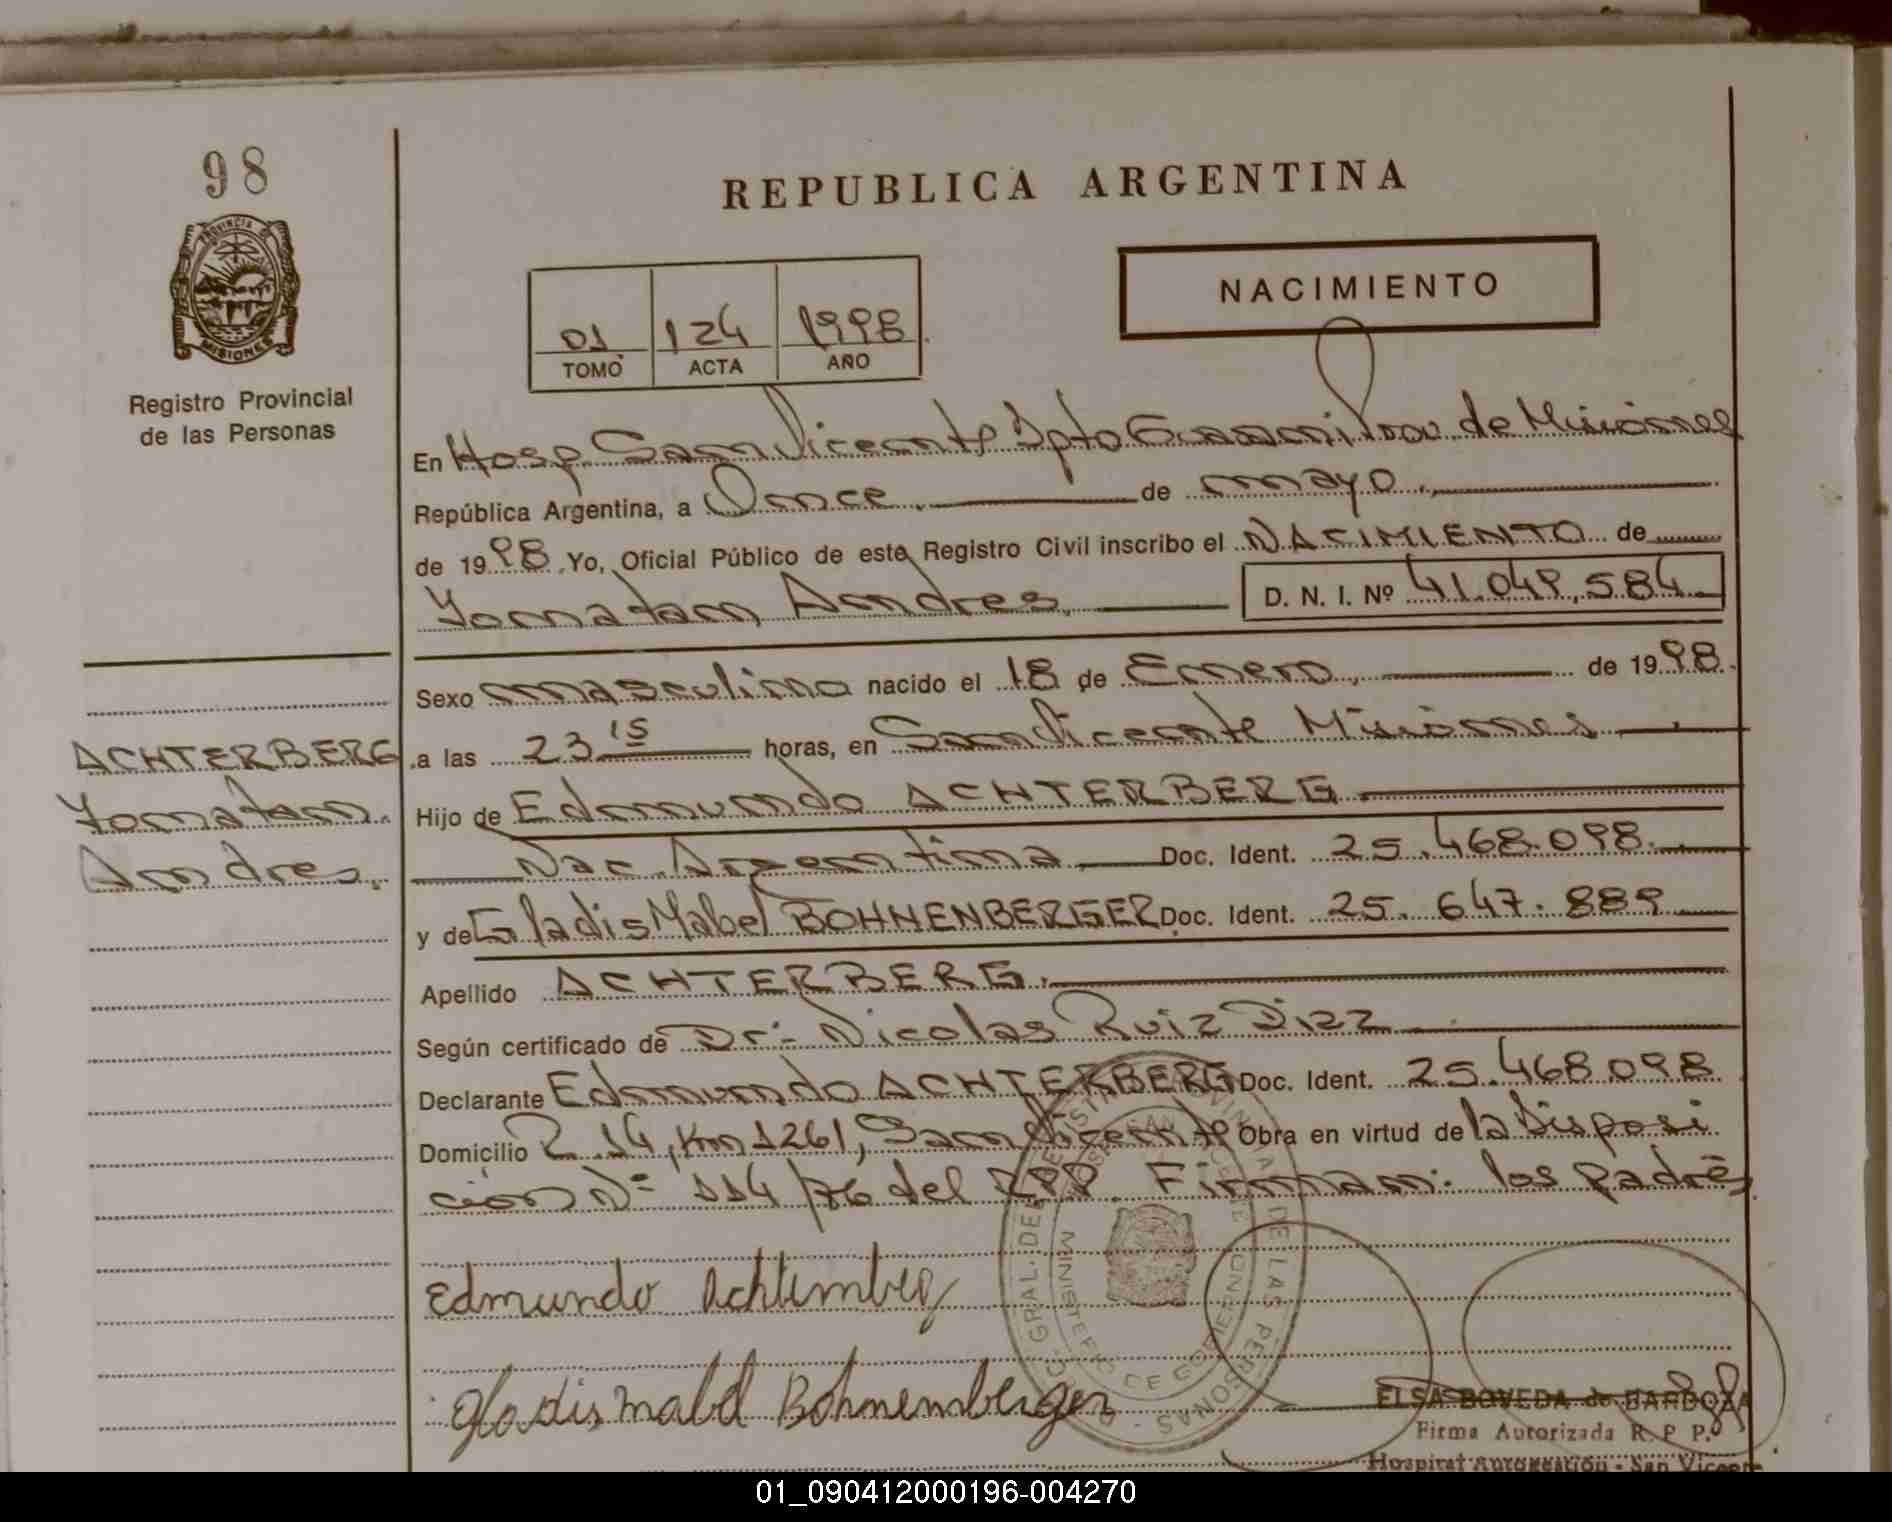 98
PROVINCIA DE
MISIONES
Registro Provincial
de las Personas
REPUBLICA ARGENTINA
NACIMIENTO
01 124 1998
TOMO ACTA AÑO
En Hosp. San Vicente Dpto Guaraní Prov. de Misiones
República Argentina, a Once de mayo
de 1998. Yo, Oficial Público de este Registro Civil inscribo el NACIMIENTO de
Yonatan Andres D. N. I. Nº 41.049.584
Sexo masculino nacido el 18 de Enero, de 1998.
ACHTERBERG
Yonatan
Andres.
a las 23 15 horas, en San Vicente Misiones
Hijo de Edmundo ACHTERBERG
Nac. Argentina Doc. Ident. 25.468.098.
y de Gladis Mabel BOHNENBERGER Doc. Ident. 25.647.889
Apellido ACHTERBERG.
Según certificado de Dr:- Nicolas Ruiz Diaz
Declarante Edmundo ACHTERBERG Doc. Ident. 25.468.098
Domicilio R. 14, Km 1261, San Vicente Obra en virtud de la Disposi
ción Nº 114/76 del RPP. Firman: los padres
Edmundo Achtemberg
Gladis Mabel Bohnemberger
MINISTERIO DE GOBIERNO
ELSA BOVEDA de BARBOZA
Firma Autorizada R. P. P.
Hospital Autogestión - San Vicente
01_090412000196-004270